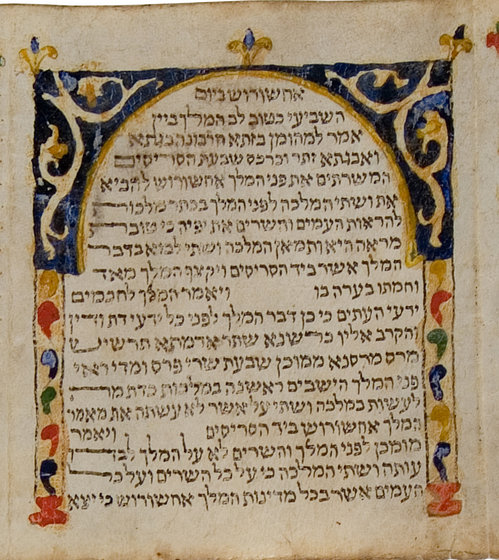 אחשורוש ביום
השביעי כטוב לב המלך ביין
אמר למהומן בזתא חרבונה בגתא
ואבגתא זתר וכרכס שבעת הסריסים
המשרתים את פני המלך אחשורוש להביא
את ושתי המלכה לפני המלך בכתר מלכות
להראות העמים והשרים את יפיה כי טובת
מראה היא ותמאן המלכה ושתי לבוא בדבר
המלך אשר ביד הסריסים ויקצף המלך מאד
וחמתו בערה בו ויאמר המלך לחכמים
ידעי העתים כי כן דבר המלך לפני כל ידעי דת ודין
והקרב אליו כרשנא שתר אדמתא תרשיש
מרס מרסנא ממוכן שבעת שרי פרס ומדי ראי
פני המלך הישבים ראשנה במלכות כדת מה
לעשות במלכה ושתי על אשר לא עשתה את מאמר
המלך אחשורוש ביד הסריסים ויאמר
מומכן לפני המלך והשרים לא על המלך לבדו
עותה ושתי המלכה כי על כל השרים ועל כל
העמים אשר בכל מדינות המלך אחשורוש כי יצא